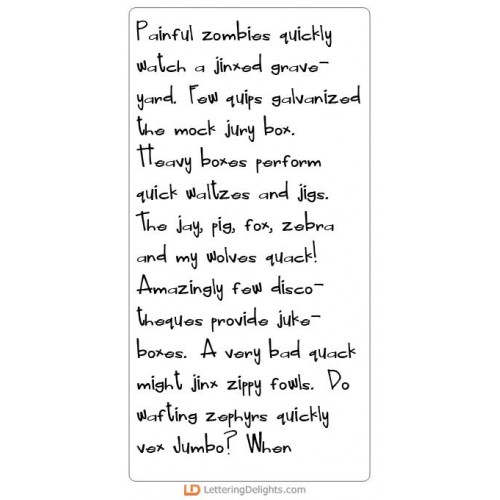 Painful zombies quickly
watch a jinxed grave-
yard. Few quips galvanized
the mock jury box.
Heavy boxes perform
quick waltzes and jigs.
The jay, pig, fox, zebra
and my wolves quack!
Amazingly few disco-
theques provide juke-
boxes. A very bad quack
might jinx zippy fowls. Do
wafting zephyrs quickly
vex Jumbo? When
LD LetteringDelights.com